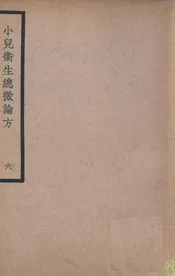 小兒衞生總微論方
六